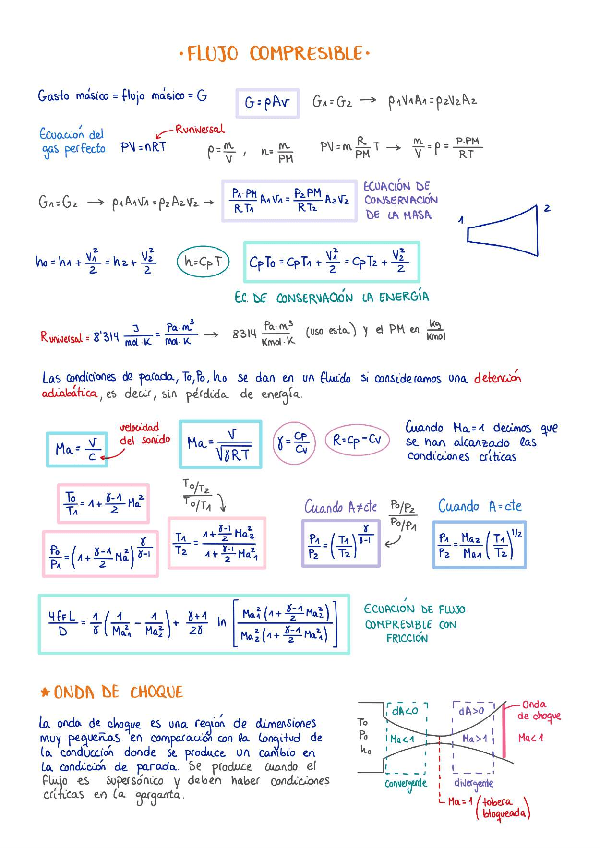 · FLUJO COMPRESIBLE ·
Gasto másico = flujo másico = G   G = ρAv   G₁ = G₂ → ρ₁V₁A₁ = ρ₂V₂A₂
Runiversal
Ecuación del gas perfecto   PV = nRT   ρ = m/V , n = m/PM   PV = m R/PM T → m/V = ρ = P·PM/RT
G₁ = G₂ → ρ₁A₁V₁ = ρ₂A₂V₂ → P₁·PM/RT₁ A₁V₁ = P₂PM/RT₂ A₂V₂
ECUACIÓN DE
CONSERVACIÓN
DE LA MASA
1   2
h₀ = h₁ + V₁²/2 = h₂ + V₂²/2   h = CpT   CpT₀ = CpT₁ + V₁²/2 = CpT₂ + V₂²/2
EC. DE CONSERVACIÓN LA ENERGÍA
Runiversal = 8'314 J/mol·K = Pa·m³/mol·K → 8314 Pa·m³/Kmol·K (uso esta) y el PM en kg/Kmol
Las condiciones de parada, T₀, P₀, h₀ se dan en un fluido si consideramos una detención
adiabática, es decir, sin pérdida de energía.
Ma = V/C
velocidad
del sonido
Ma = V/√γRT   γ = Cp/Cv   R = Cp − Cv
Cuando Ma = 1 decimos que
se han alcanzado las
condiciones críticas
T₀/T₁ = 1 + γ-1/2 Ma²
T₀/T₂
T₀/T₁
P₀/P₁ = (1 + γ-1/2 Ma²)^(γ/γ-1)
T₁/T₂ = 1 + γ-1/2 Ma₂² / 1 + γ-1/2 Ma₁²
Cuando A ≠ cte   P₀/P₂
P₀/P₁
P₁/P₂ = (T₁/T₂)^(γ/γ-1)
Cuando A = cte
P₁/P₂ = Ma₂/Ma₁ (T₁/T₂)^1/2
4fF L/D = 1/γ (1/Ma₁² − 1/Ma₂²) + γ+1/2γ ln [Ma₁²(1 + γ-1/2 Ma₂²) / Ma₂²(1 + γ-1/2 Ma₁²)]
ECUACIÓN DE FLUJO
COMPRESIBLE CON
FRICCIÓN
★ ONDA DE CHOQUE
La onda de choque es una región de dimensiones
muy pequeñas en comparación con la longitud de
la conducción donde se produce un cambio en
la condición de parada. Se produce cuando el
flujo es supersónico y deben haber condiciones
críticas en la garganta.
T₀
P₀
h₀
dA<0   dA>0
Ma<1   Ma>1
Onda
de choque
Ma<1
convergente   divergente
Ma = 1 (tobera
bloqueada)